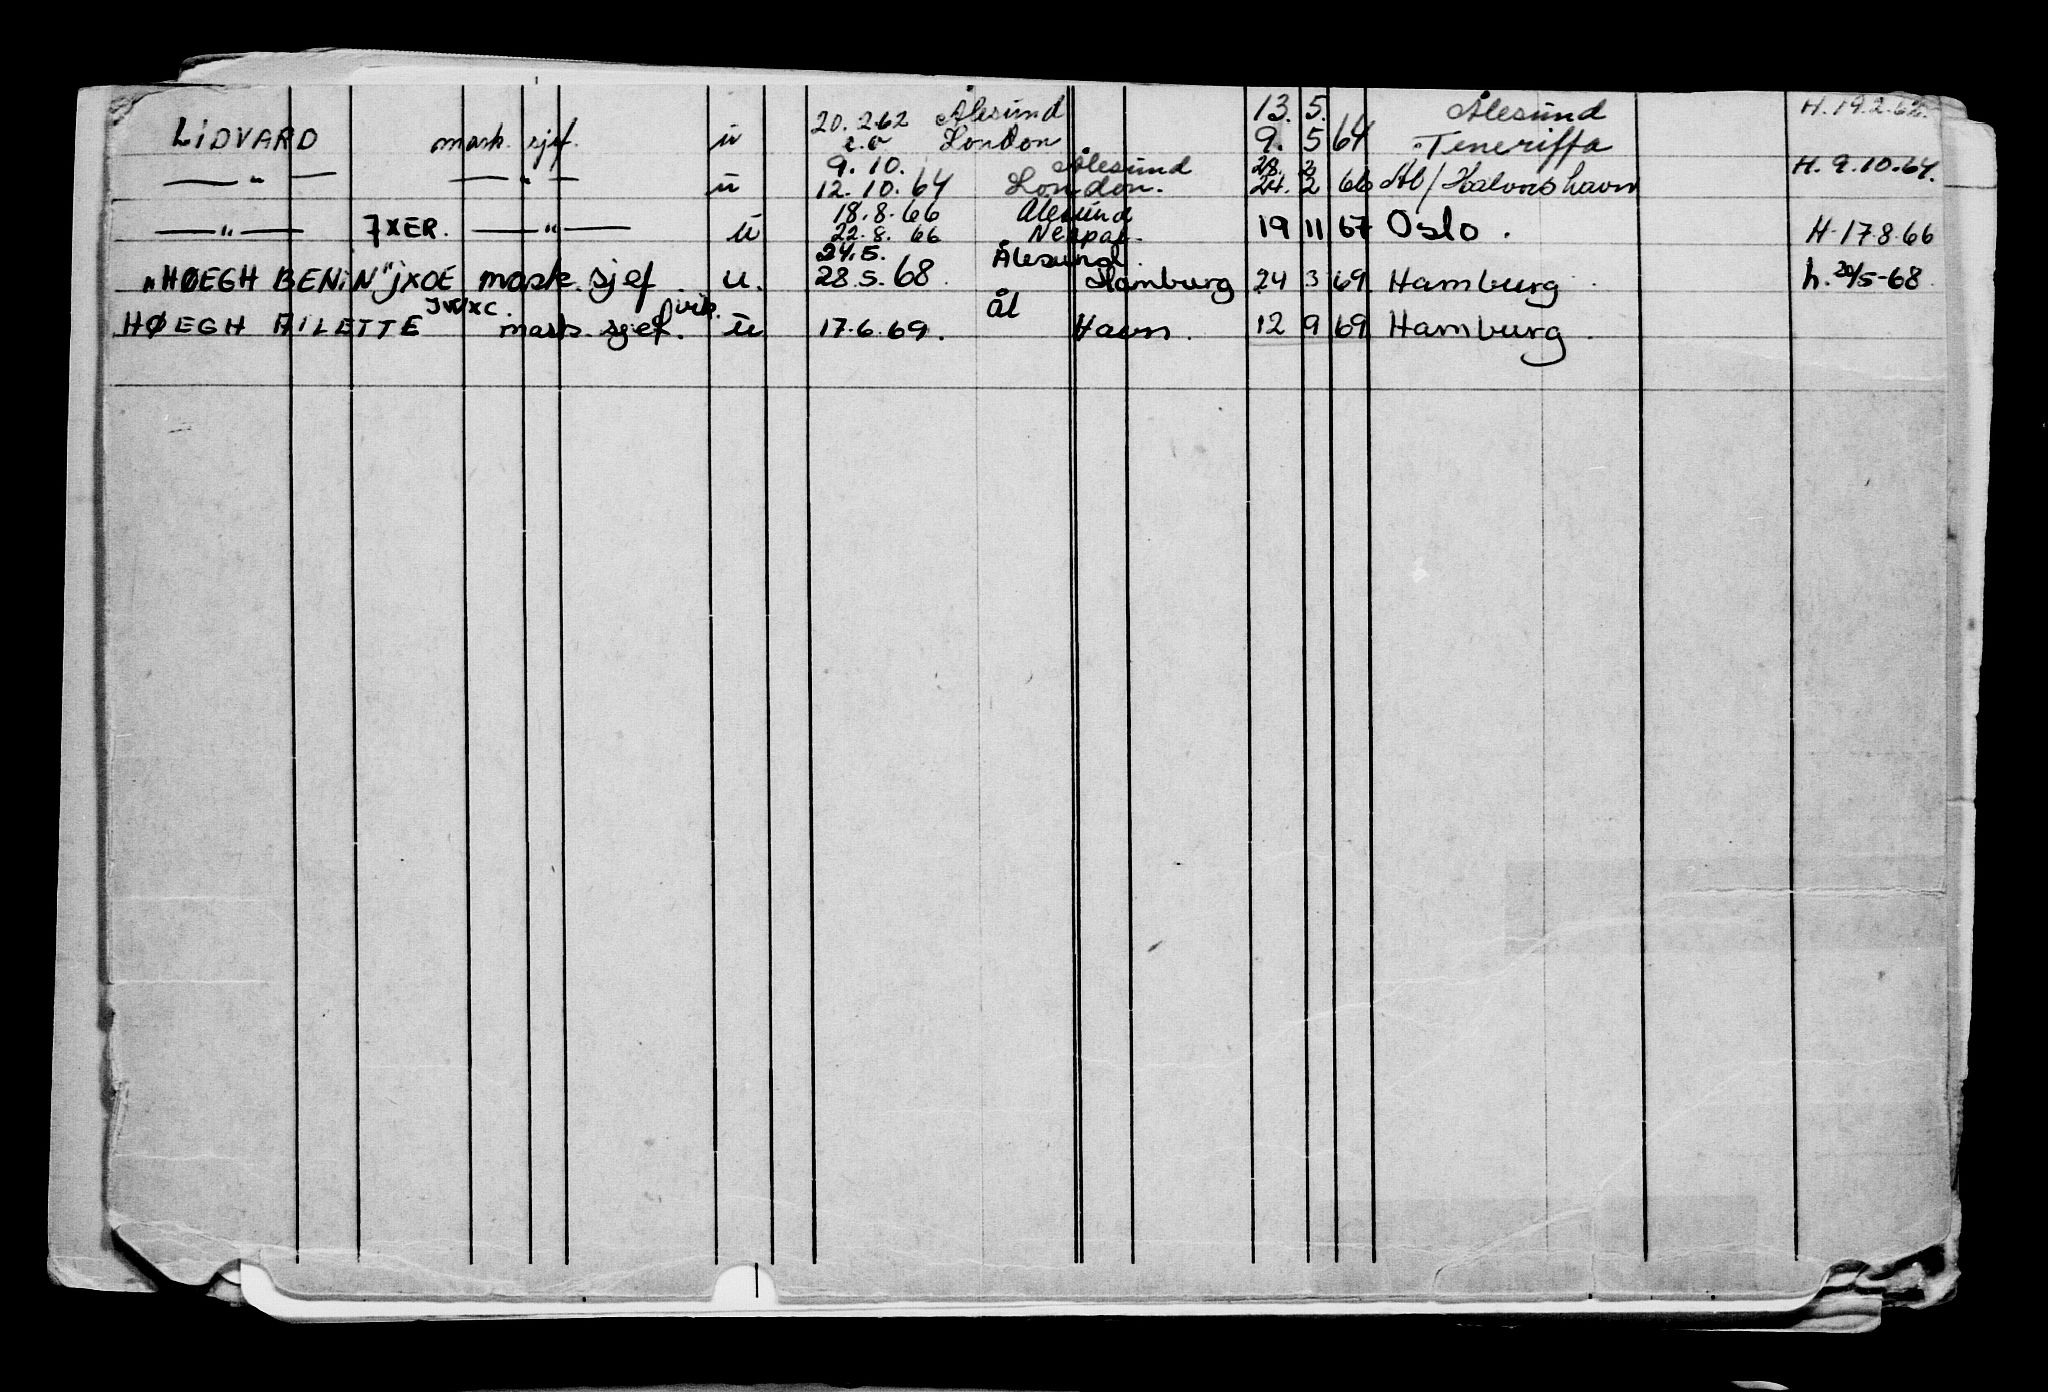 20.2.62 Ålesund 13. 5. Ålesund H. 19.2.62.
LIDVARD mask. sjef. u London 9. 5 64 Teneriffa
9. 10. Ålesund 28. 2 H. 9.10.64.
— " — — " — u 12.10.64 London. 24. 2 66 Al/Halvorshavn
18.8.66 Ålesund
— " — JXER. — " — u 22.8.66 19 11 67 Oslo. H. 17.8.66
24.5. Ålesund.
"HØEGH BENIN" JXOE mask. sjef. u. 28.5.68. Hamburg 24 3 69 Hamburg. h. 20/5-68.
JWXC. vik. ål
HØEGH AILETTE mask. sjef. u 17.6.69. Havn. 12 9 69 Hamburg.